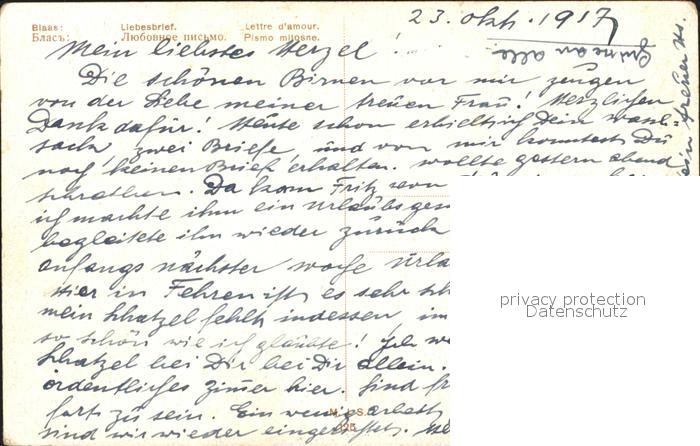 Blaas: Liebesbrief. Lettre d'amour.
Бласъ: Любовное письмо. Pismo miłosne.
23. Okt. 1917
Grüße an alle
Mein liebstes Herzel!
Die schönen Birnen vor mir zeugen
von der Liebe meiner treuen Frau! Herzlichen
Dank dafür! Heute schon erhielt ich Dein
zwei Briefe und von mir konntest Du
noch keinen Brief erhalten. Wollte gestern abend
schreiben. Da kam Fritz von
ich machte ihm ein Urlaubsges
begleitete ihn wieder zurück
anfangs nächster Woche Urla
Hier in Fehren ist es sehr sch
mein Schatzel fehlt indessen, im
so schön wie ich glaubte! Ich w
Schatzel bei Dir bei Dir allein.
ordentliches Zimer hier. Sind fr
fort zu sein. Ein wenig arbeit
sind wir wieder eingerichtet.
M. J. S.
privacy protection
Datenschutz